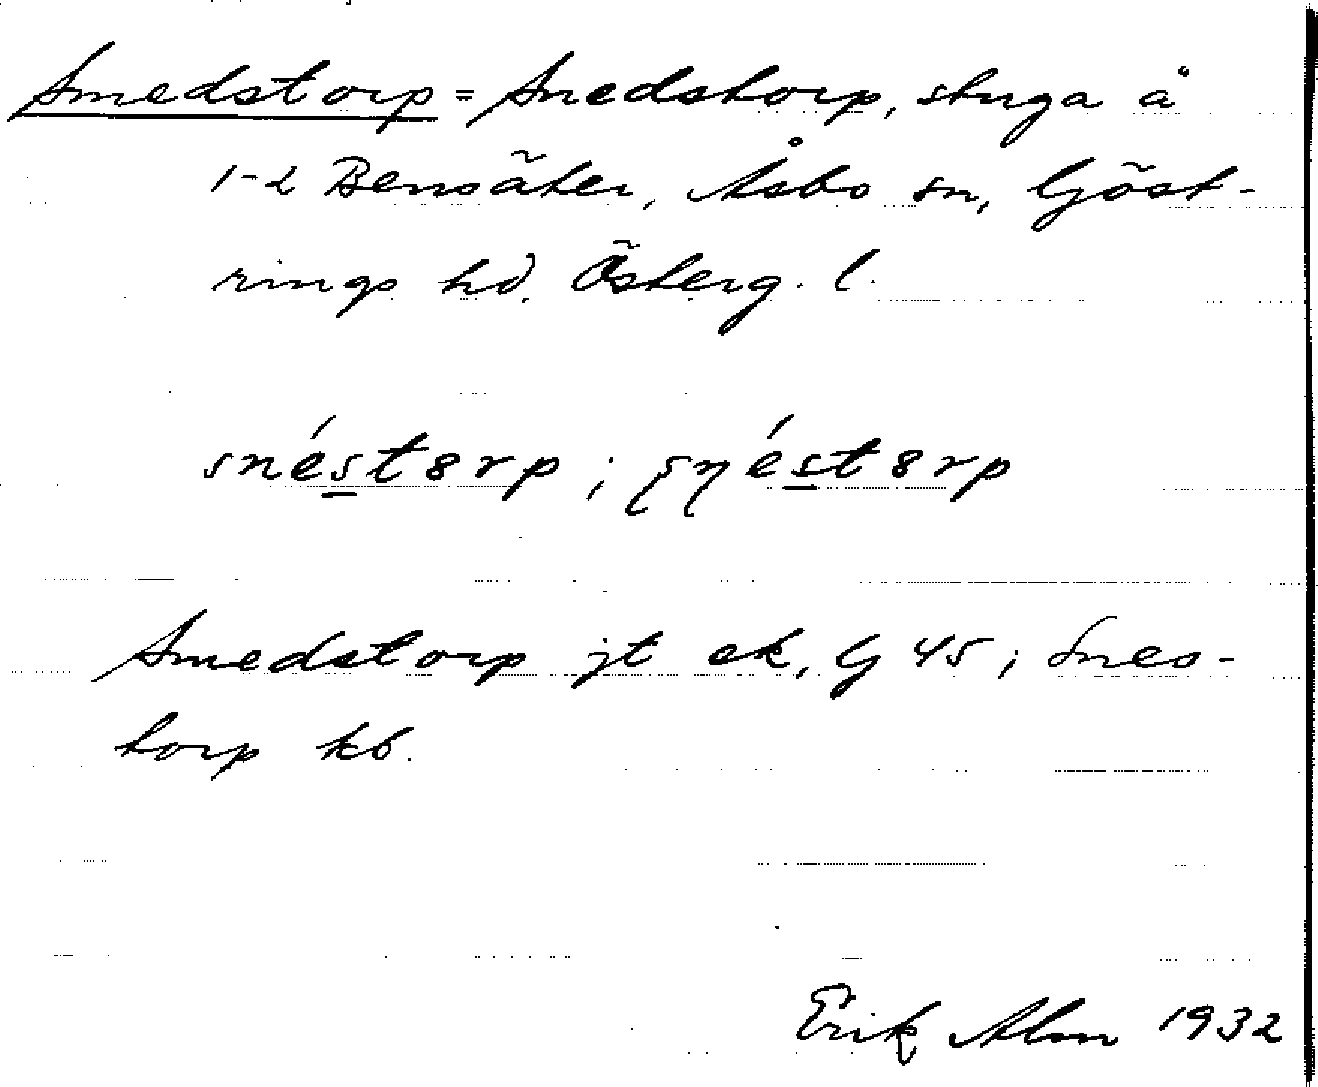 Smedstorp = Snedstorp, stuga å
1-2 Bensäter, Åsbo sn, Göst-
rings hd. Österg. l.
snéstɞrp ; ʂɳéstɞrp
Smedstorp jt ek, G 45 ; Snes-
torp kb.
Erik Alm 1932